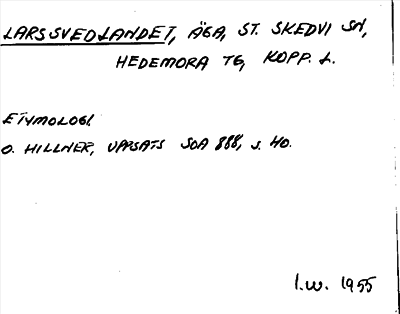 LARSSVEDLANDET, ÄGA, ST. SKEDVI SN,
HEDEMORA TG, KOPP. L.
ETYMOLOGI.
O. HILLNER, UPPSATS SOA 888, s. 40.
I.w. 1955